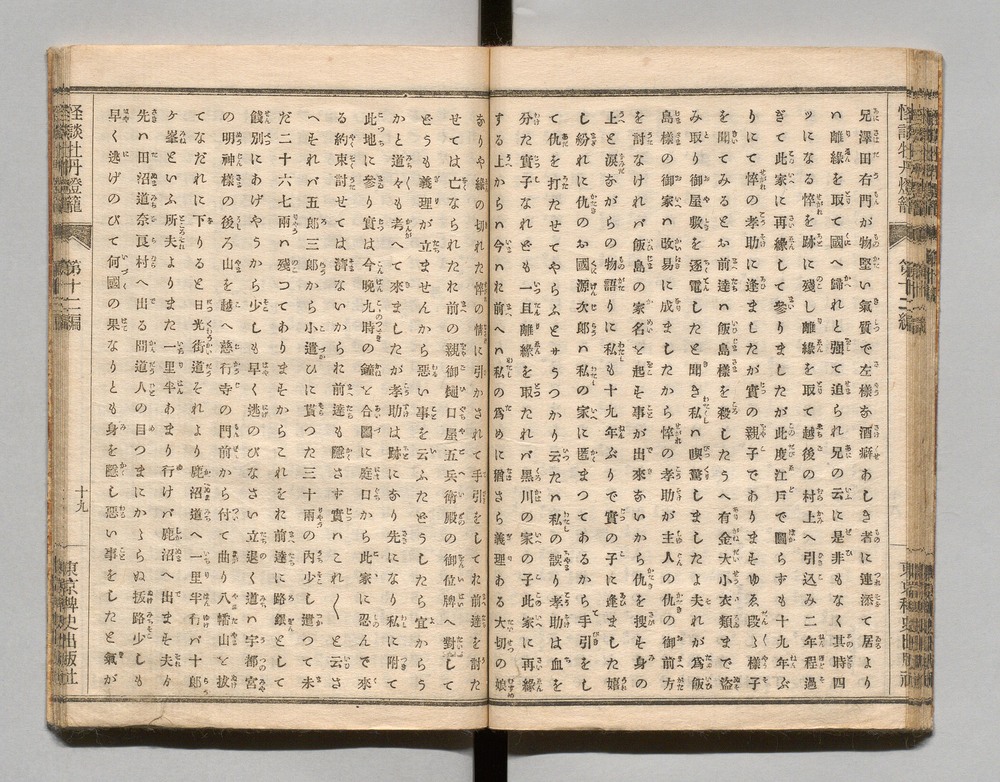 怪談牡丹燈籠 第十二編
兄澤田右門が物堅い氣質で左樣な酒癖あしき者に連添て居るより
ハ離緣を取て國へ歸れと强て迫られ兄の云に是非もなく其時四
ツになる悴を跡に殘し離緣を取て越後の村上へ引込み二年程過
ぎて此家に再緣して參りましたが此度江戸で圖らずも十九年ぶ
りにて悴の孝助に逢ましたが實の親子でありますゆゑ段〻樣子
を聞てみるとお前達ハ飯島樣を殺したうへ有金大小衣類まで盜
み取り御屋敷を逐電したと聞き私ハ喫驚しましたよ夫れが爲飯
島樣の御家ハ改易に成ましたから悴の孝助が主人の仇の御前方
を討なければ飯島の家名を起す事が出來ないから仇を搜す身の
上と淚ながらの物語りに私も十九年ぶりで實の子に逢ました嬉
し紛れに仇のお國源次郎ハ私の家に匿まつてあるから手引をし
て仇を打たせてやらふとサうつかり云たハ私の誤まり孝助は血を
分た實子なれども一旦離緣を取たれバ黑川の家の子此家に再緣
する上からハ今ハお前ハ私の爲めに猶さら義理ある大切の娘
なりや緣の切れた悴の情に引かされて手引をしてお前達を討た
せては亡なられたお前の親御樋口屋五兵衛殿の御位牌へ對して
どうも義理が立ませんから惡い事を云ふたどうしたら宜からう
かと道々も考へて來ましたが孝助は跡になり先になり私に附て
此地に參り實は今晩九時の鐘を合圖に庭口から此家に忍んで來
る約束討せては濟ないからお前達も隱さず實ハこれ〳〵と云さ
へそれバ五郎三郎から小遣ひに貰つた三十兩の內少し遣つて未
だ二十六七兩ハ殘つてありまそからこれをお前達に路銀として
餞別にあげやうから少しも早く逃のびなさい立退く道ハ宇都宮
の明神樣の後ろ山を越へ慈行寺の門前から付て曲り八幡山を拔
てなだれに下りると日光街道それより鹿沼道へ一里半行バ十郎
ヶ峯といふ所夫よりまた一里半あまり行けバ鹿沼へ出まそ夫方
先ハ田沼道奈良村へ出る間道人の目つまにかゝらぬ拔路少しも
早く逃げのびて何國の果なりとも身を隱し惡い事をしたと氣が
怪談牡丹燈籠 第十二編 十九 東京稗史出版社